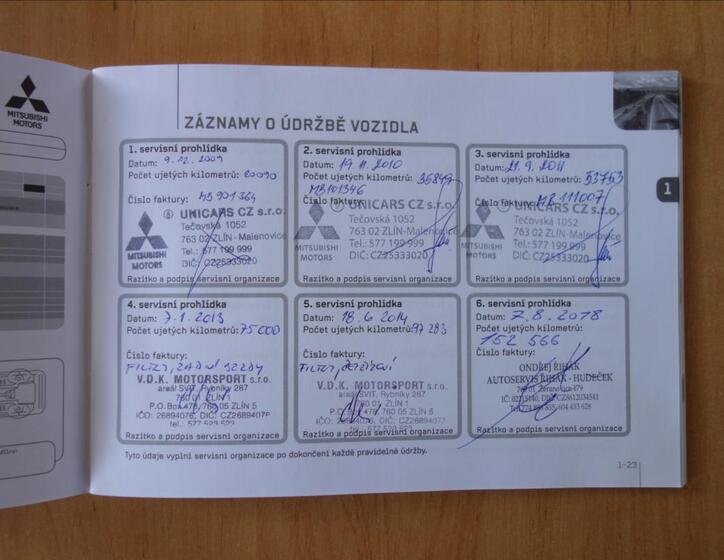 MITSUBISHI
MOTORS
ZÁZNAMY O ÚDRŽBĚ VOZIDLA
1
1. servisní prohlídka
Datum: 9.12.2009
Počet ujetých kilometrů: 20090
Číslo faktury: MB901364
UNICARS CZ s.r.o.
Tečovská 1052
763 02 ZLÍN - Malenovice
Tel.: 577 199 999
DIČ: CZ25333020
MITSUBISHI
MOTORS
Razítko a podpis servisní organizace
2. servisní prohlídka
Datum: 19.11.2010
Počet ujetých kilometrů:
MB101346
Číslo faktury:
UNICARS CZ s.r.o.
Tečovská 1052
763 02 ZLÍN-Malenovice
Tel.: 577 199 999
DIČ: CZ25333020
MITSUBISHI
MOTORS
Razítko a podpis servisní organizace
3. servisní prohlídka
Datum: 21.9.2011
Počet ujetých kilometrů: 53753
Číslo faktury: MB 111007
UNICARS CZ s.r.o.
Tečovská 1052
763 02 ZLÍN-Malenovice
Tel.: 577 199 999
DIČ: CZ25333020
MITSUBISHI
MOTORS
Razítko a podpis servisní organizace
4. servisní prohlídka
Datum: 7.1.2013
Počet ujetých kilometrů: 75000
Číslo faktury:
V.D.K. MOTORSPORT s.r.o.
areál SVIT, Rybníky 287
760 01 ZLÍN 1
P.O.Box 476, 760 05 ZLÍN 5
IČO: 26894076, DIČ: CZ26894076
tel.: 577 523 523
Razítko a podpis servisní organizace
5. servisní prohlídka
Datum: 18.6.2014
Počet ujetých kilometrů: 97283
Číslo faktury:
V.D.K. MOTORSPORT s.r.o.
areál SVIT, Rybníky 287
760 01 ZLÍN 1
P.O.Box 476, 760 05 ZLÍN 5
IČO: 26894076, DIČ: CZ26894076
tel.: 577 523 523
Razítko a podpis servisní organizace
6. servisní prohlídka
Datum: 7.8.2018
Počet ujetých kilometrů:
152 566
Číslo faktury:
ONDŘEJ ŘIHÁK
AUTOSERVIS ŘIHÁK - HUDEČEK
Razítko a podpis servisní organizace
Tyto údaje vyplní servisní organizace po dokončení každé pravidelné údržby.
1-23